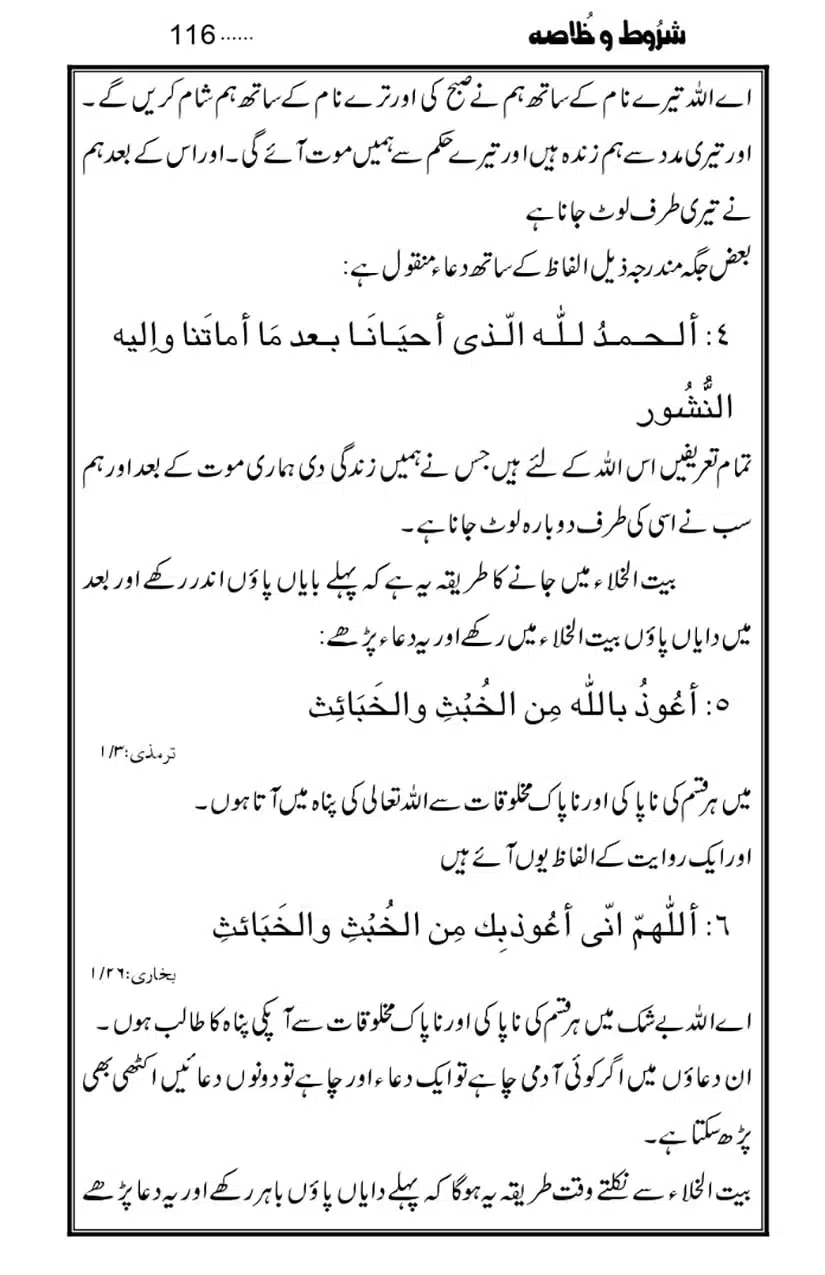 شرُوط و خُلاصه ......116
اے اللہ تیرے نام کے ساتھ ہم نے صبح کی اور ترے نام کے ساتھ ہم شام کریں گے۔
اور تیری مدد سے ہم زندہ ہیں اور تیرے حکم سے ہمیں موت آئے گی۔اور اس کے بعد ہم
نے تیری طرف لوٹ جانا ہے
بعض جگہ مندرجہ ذیل الفاظ کے ساتھ دعاء منقول ہے:
٤: ألـحـمـدُ لـلّٰـه الّـذى أحيَـانَـا بـعد مَا أماتَنا وإليه
النُّشُور
تمام تعریفیں اس اللہ کے لئے ہیں جس نے ہمیں زندگی دی ہماری موت کے بعد اور ہم
سب نے اسی کی طرف دوبارہ لوٹ جانا ہے۔
بیت الخلاء میں جانے کا طریقہ یہ ہے کہ پہلے بایاں پاؤں اندر رکھے اور بعد
میں دایاں پاؤں بیت الخلاء میں رکھے اور یہ دعاء پڑھے:
٥: أعُوذُ باللّٰه مِن الخُبْثِ والخَبَائِث
ترمذی:۱/۳
میں ہر قسم کی ناپاکی اور ناپاک مخلوقات سے اللہ تعالی کی پناہ میں آتا ہوں۔
اور ایک روایت کے الفاظ یوں آئے ہیں
٦: أللّٰهمّ انّى أعُوذبِك مِن الخُبْثِ والخَبَائثِ
بخاری:۱/۲۶
اے اللہ بے شک میں ہر قسم کی ناپاکی اور ناپاک مخلوقات سے آپکی پناہ کا طالب ہوں۔
ان دعاؤں میں اگر کوئی آدمی چاہے تو ایک دعاء اور چاہے تو دونوں دعائیں اکٹھی بھی
پڑھ سکتا ہے۔
بیت الخلاء سے نکلتے وقت طریقہ یہ ہوگا کہ پہلے دایاں پاؤں باہر رکھے اور یہ دعا پڑھے